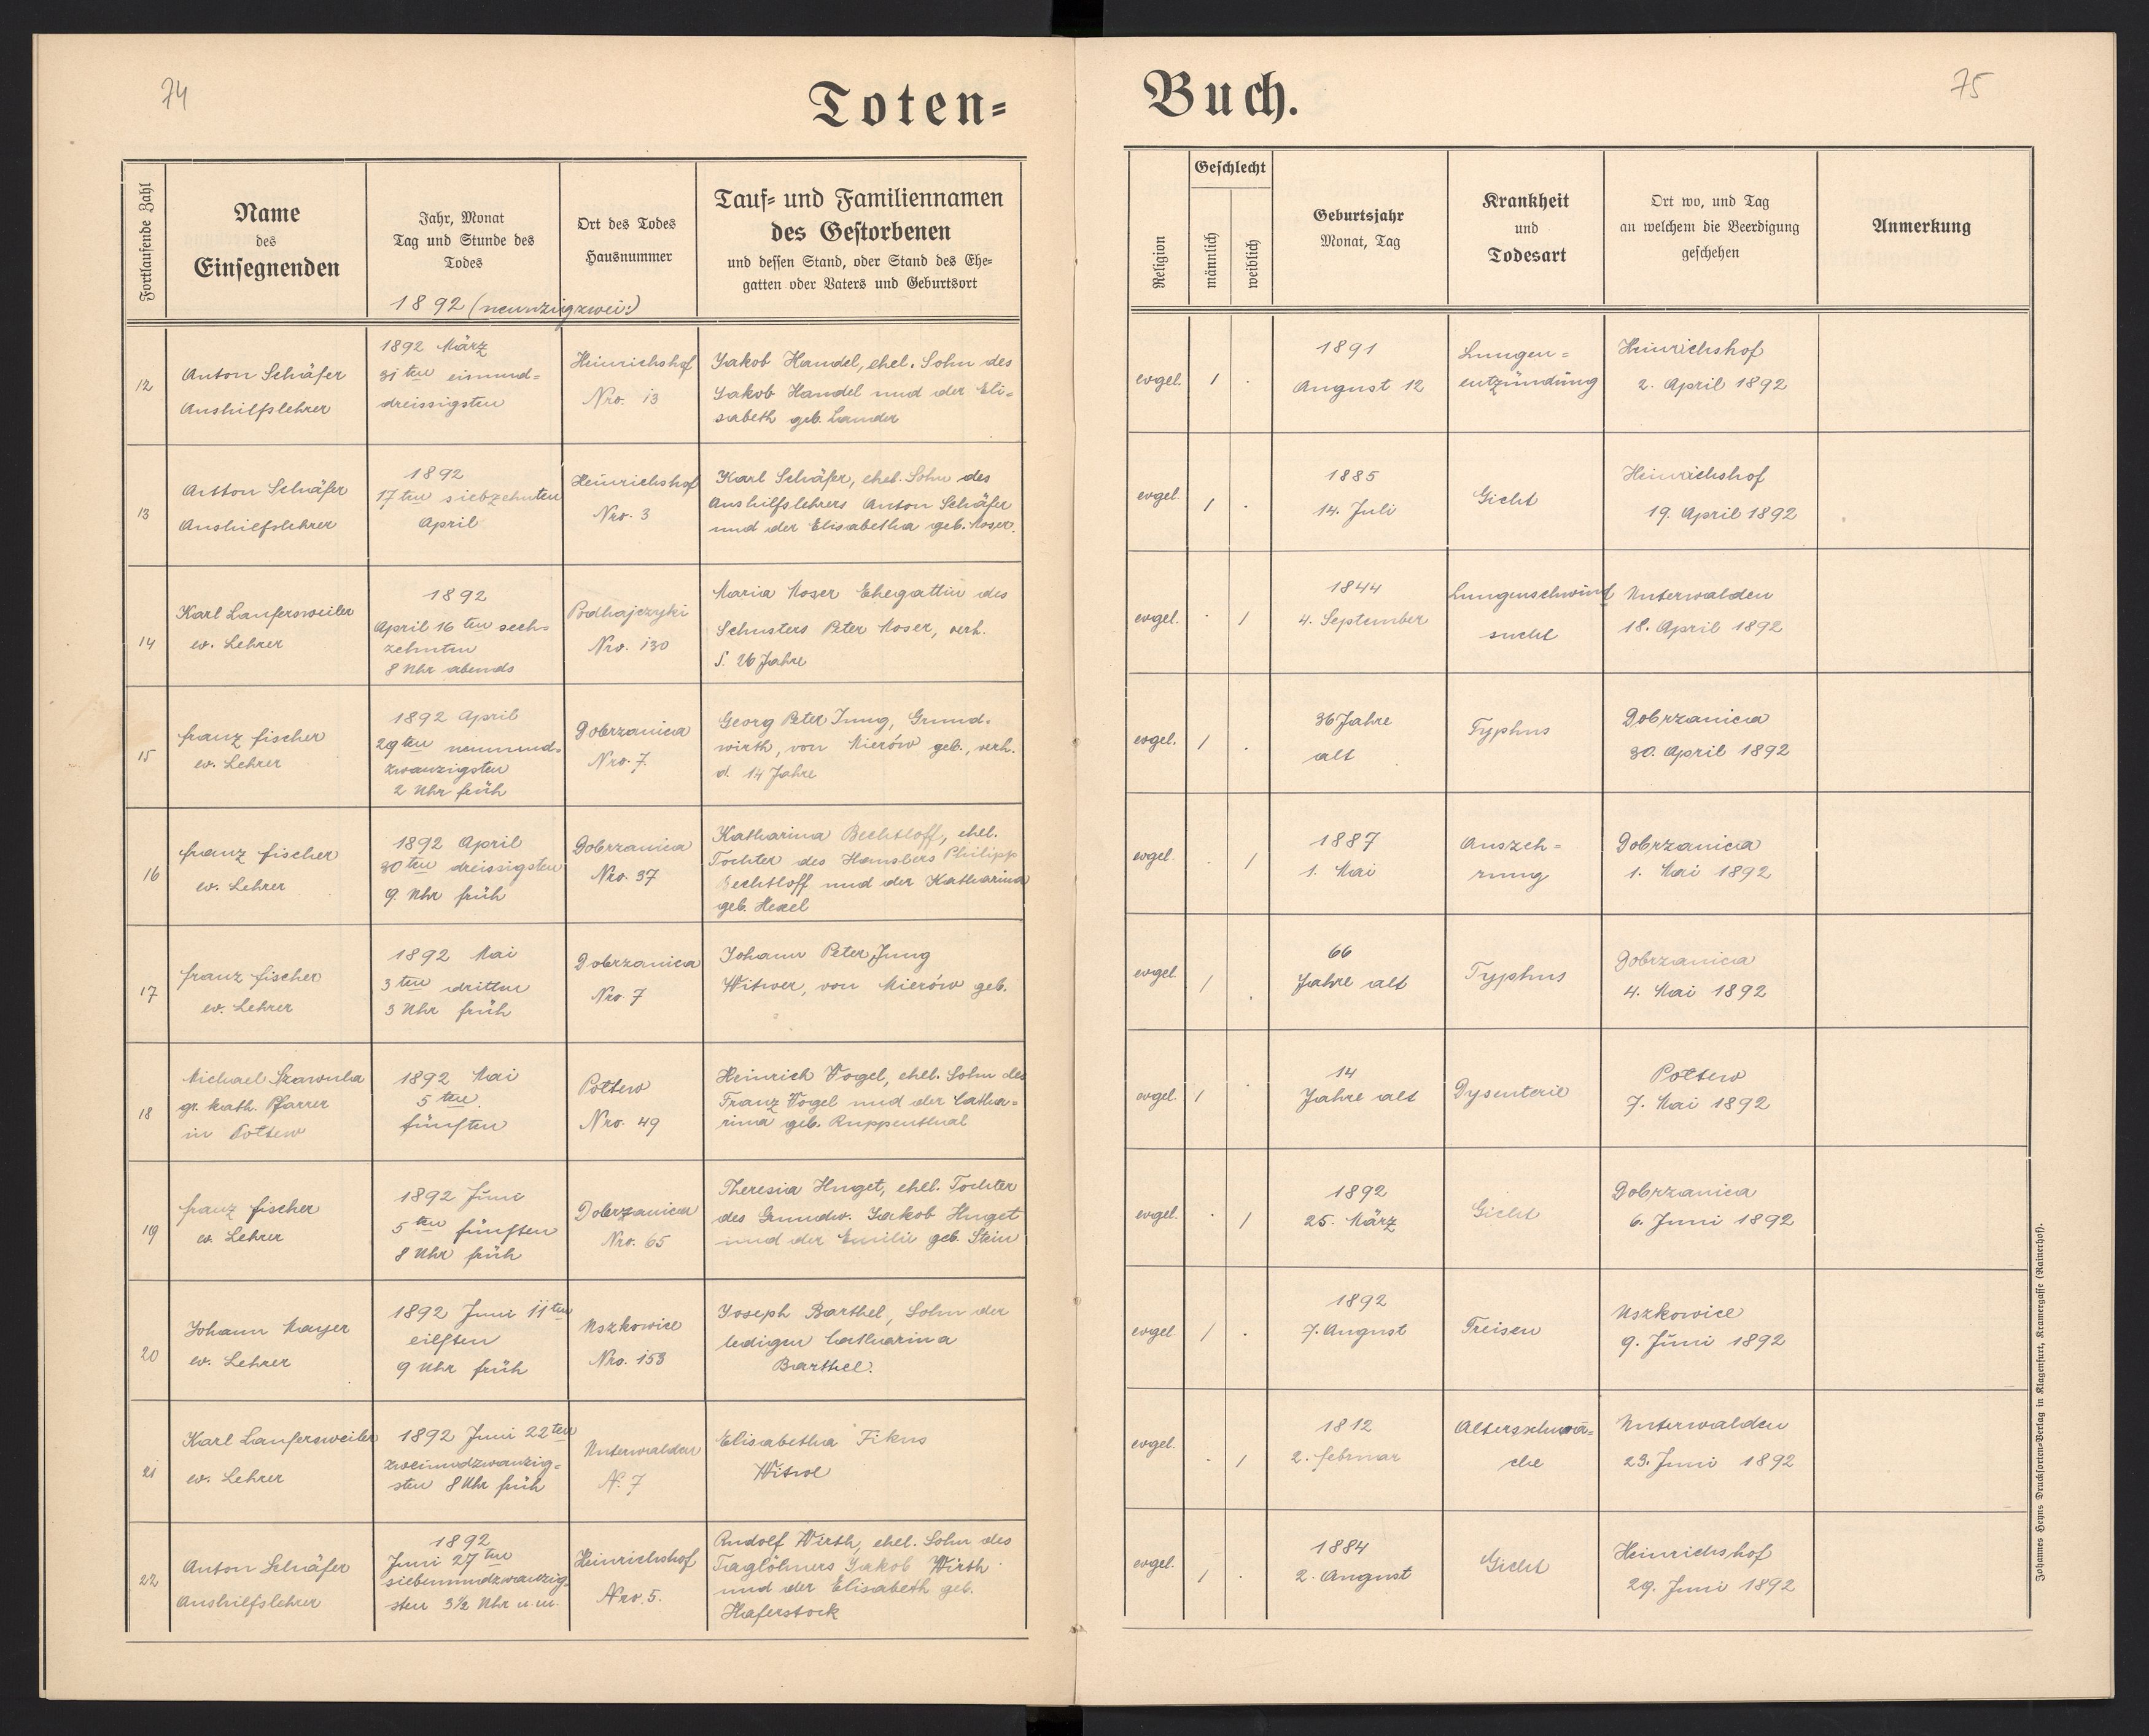 74
Toten=
Fortlaufende Zahl
Name
des
Einsegnenden
Jahr, Monat
Tag und Stunde des
Todes
Ort des Todes
Hausnummer
Tauf= und Familiennamen
des Gestorbenen
und dessen Stand, oder Stand des Ehe=
gatten oder Vaters und Geburtsort
1892 (neunzigzwei:)
12
Anton Schäfer
Aushilfslehrer
1892 März
31 ten einund=
dreissigsten
Heinrichshof
Nro. 13
Jakob Handel, ehel. Sohn des
Jakob Handel und der Eli=
sabeth geb. Lander
13
Anton Schäfer
Aushilfslehrer
1892
17 ten siebzehnten
April
Heinrichshof
Nro. 3
Karl Schäfer, ehel. Sohn des
Aushilfslehrers Anton Schäfer
und der Elisabetha geb. Moser.
14
Karl Laufersweiler
ev. Lehrer
1892
April 16 ten sech=
zehnten
8 Uhr abends
Podhajczyki
Nro. 130
Maria Moser Ehegattin des
Schusters Peter Moser, verh.
s. 26 Jahre
15
Franz Fischer
ev. Lehrer
1892 April
29 ten neunund=
zwanzigsten
2 Uhr früh
Dobrzanica
Nro. 7.
Georg Peter Jung, Grund=
wirth, von Mierów geb., verh.
d. 14 Jahre
16
Franz Fischer
ev. Lehrer
1892 April
30 ten dreissigsten
9 Uhr früh
Dobrzanica
Nro. 37
Katharina Bechtloff, ehel.
Tochter des Hauslers Philipp
Bechtloff und der Katharina
geb. Hexel
17
Franz Fischer
ev. Lehrer
1892 Mai
3 ten dritten
3 Uhr früh
Dobrzanica
Nro. 7
Johann Peter Jung
Witwer, von Mierów geb.
18
Michael
gr. kath. Pfarrer
in Poltew
1892 Mai
5 ten
fünften
Poltew
Nro. 49
Heinrich Vogel, ehel. Sohn des
Franz Vogel und der Catha=
rina geb. Ruppenthal
19
Franz Fischer
ev. Lehrer
1892 Juni
5 ten fünften
8 Uhr früh
Dobrzanica
Nro. 65
Theresia Huget, ehel. Tochter
des Grundw. Jakob Huget
und der Emilie geb. Stein
20
Johann Mayer
ev. Lehrer
1892 Juni 11 ten
eilften
9 Uhr früh
Uszkowice
Nro. 153
Joseph Barthel, Sohn der
ledigen Catharina
Barthel.
21
Karl Laufersweiler
ev. Lehrer
1892 Juni 22 ten
zweiundzwanzig=
sten 8 Uhr früh
Unterwalden
N. 7
Elisabetha Fikus
Witwe
22
Anton Schäfer
Aushilfslehrer
1892
Juni 27 ten
siebenundzwanzig=
sten 3½ Uhr n. m.
Heinrichshof
Nro. 5.
Rudolf Wirth, ehel. Sohn des
Taglöhners Jakob Wirth
und der Elisabeth geb.
Haferstock
Buch.
75
Religion
Geschlecht
männlich
weiblich
Geburtsjahr
Monat, Tag
Krankheit
und
Todesart
Ort wo, und Tag
an welchem die Beerdigung
geschehen
Anmerkung
evgel. 1 .
1891
August 12
Lungen=
entzündung
Heinrichshof
2. April 1892
evgel. 1 .
1885
14. Juli
Gicht
Heinrichshof
19. April 1892
evgel. . 1
1844
4. September
Lungenschwind
sucht
Unterwalden
18. April 1892
evgel. 1 .
36 Jahre
alt
Typhus
Dobrzanica
30. April 1892
evgel. . 1
1887
1. Mai
Auszeh=
rung
Dobrzanica
1. Mai 1892
evgel. 1 .
66
Jahre alt
Typhus
Dobrzanica
4. Mai 1892
evgel. 1 .
14
Jahre alt
Dysenterie
Poltew
7. Mai 1892
evgel. . 1
1892
25. März
Gicht
Dobrzanica
6. Juni 1892
evgel. 1 .
1892
7. August
Freisen
Uszkowice
9. Juni 1892
evgel. . 1
1812
2. Februar
Altersschwä=
che
Unterwalden
23. Juni 1892
evgel. 1 .
1884
2. August
Gicht
Heinrichshof
29. Juni 1892
Johannes Heyns Drucksorten-Verlag in Klagenfurt, Kramergasse (Rainerhof).